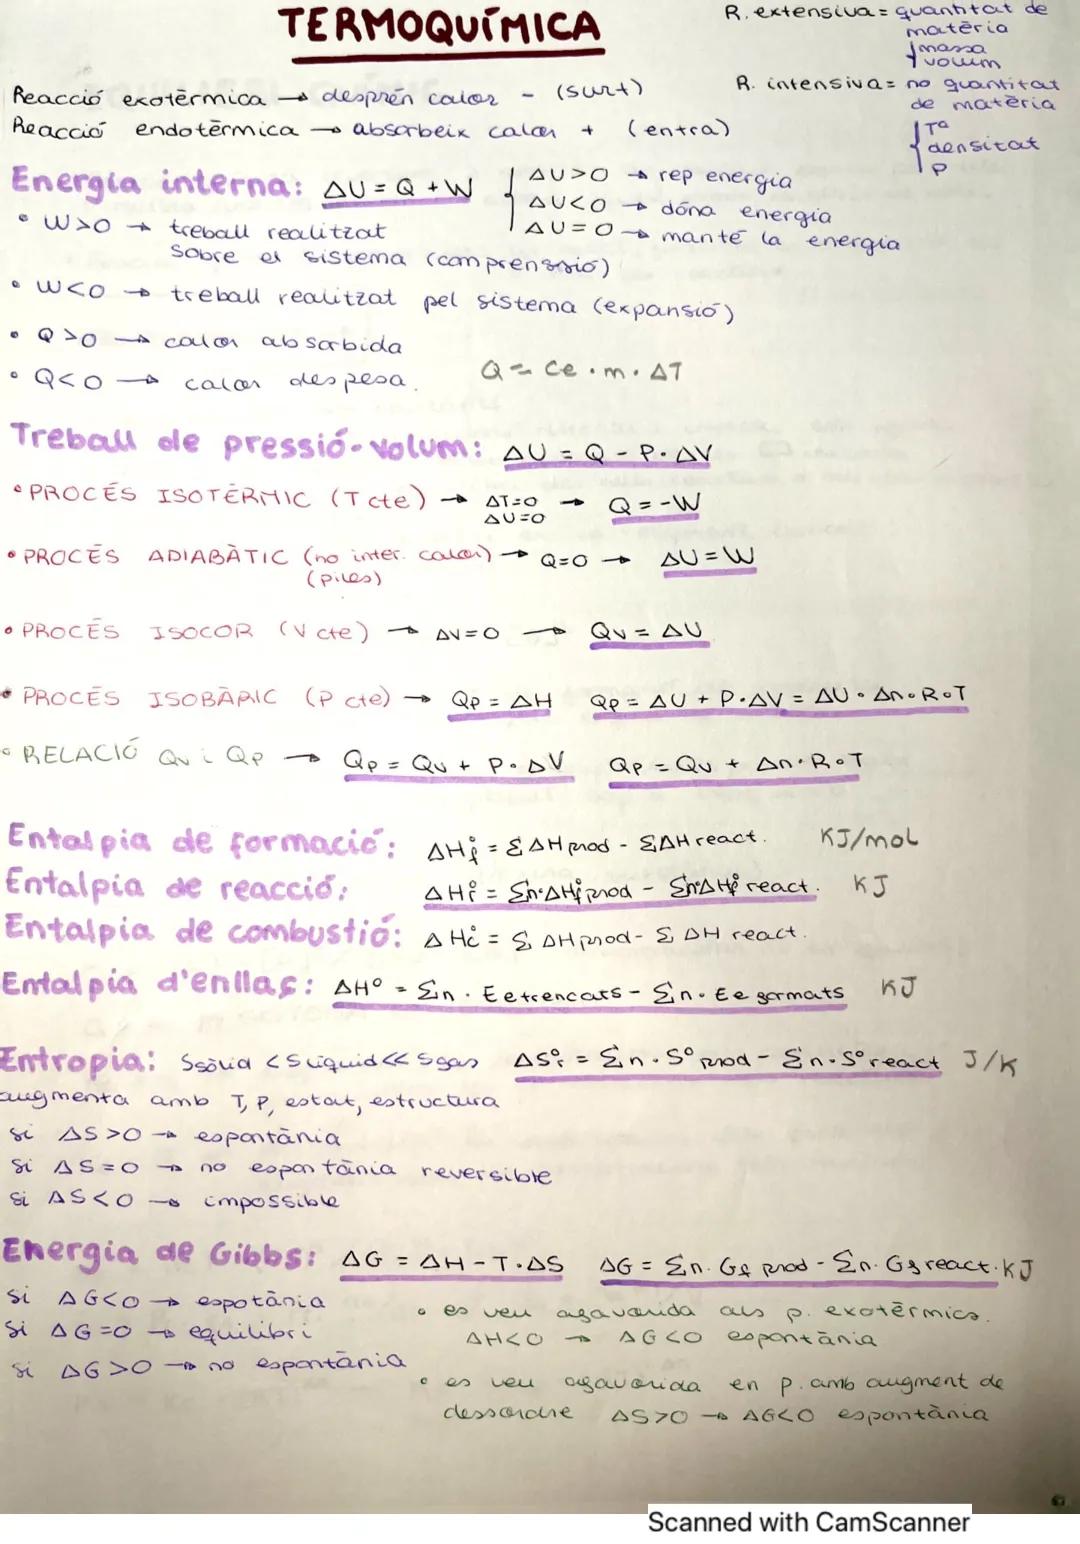 TERMOQUÍMICA
R. extensiva = quantitat de
matèria
{ massa
volum
R. intensiva = no quantitat
de matèria
{ Tª
densitat
P
Reacció exotèrmica → desprén calor - (surt)
Reacció endotèrmica → absorbeix calor + (entra)
Energia interna: ΔU = Q + W
{ ΔU>0 → rep energia
ΔU<0 → dóna energia
ΔU=0 → manté la energia
• W>0 → treball realitzat
sobre el sistema (comprenssió)
• W<0 → treball realitzat pel sistema (expansió)
• Q>0 → calor absorbida
• Q<0 → calor despesa.
Q = Ce · m · ΔT
Treball de pressió-volum: ΔU = Q - P · ΔV
• PROCÉS ISOTÈRMIC (T cte) → ΔT=0 ΔU=0 → Q = -W
• PROCÉS ADIABÀTIC (no inter. calor) → Q=0 → ΔU = W
(piles)
• PROCÉS ISOCOR (V cte) → ΔV=0 → Qv = ΔU
• PROCÉS ISOBÀRIC (P cte) → Qp = ΔH Qp = ΔU + P·ΔV = ΔU · Δn·R·T
• RELACIÓ Qv i Qp → Qp = Qv + P · ΔV Qp = Qv + Δn·R·T
Entalpia de formació: ΔHf° = ΣΔH prod - ΣΔH react. KJ/mol
Entalpia de reacció: ΔHr° = Σn·ΔHf° prod - Σn·ΔHf° react. KJ
Entalpia de combustió: ΔHc° = Σ ΔH prod - Σ ΔH react.
Entalpia d'enllaç: ΔH° = Σn · Ee trencats - Σn · Ee formats KJ
Entropia: Ssòlid < Slíquid << Sgas ΔSr° = Σn · S° prod - Σn · S° react J/K
augmenta amb T, P, estat, estructura
si ΔS>0 → espontània
si ΔS=0 → no espontània reversible
si ΔS<0 → impossible
Energia de Gibbs: ΔG = ΔH - T·ΔS ΔG = Σn. Gf prod - Σn. Gf react. KJ
si ΔG<0 → espotània
si ΔG=0 → equilibri
si ΔG>0 → no espontània
• es veu afavorida als p. exotèrmics.
ΔH<0 → ΔG<0 espontània
• es veu afavorida en p. amb augment de
dessordre ΔS>0 → ΔG<0 espontània
Scanned with CamScanner